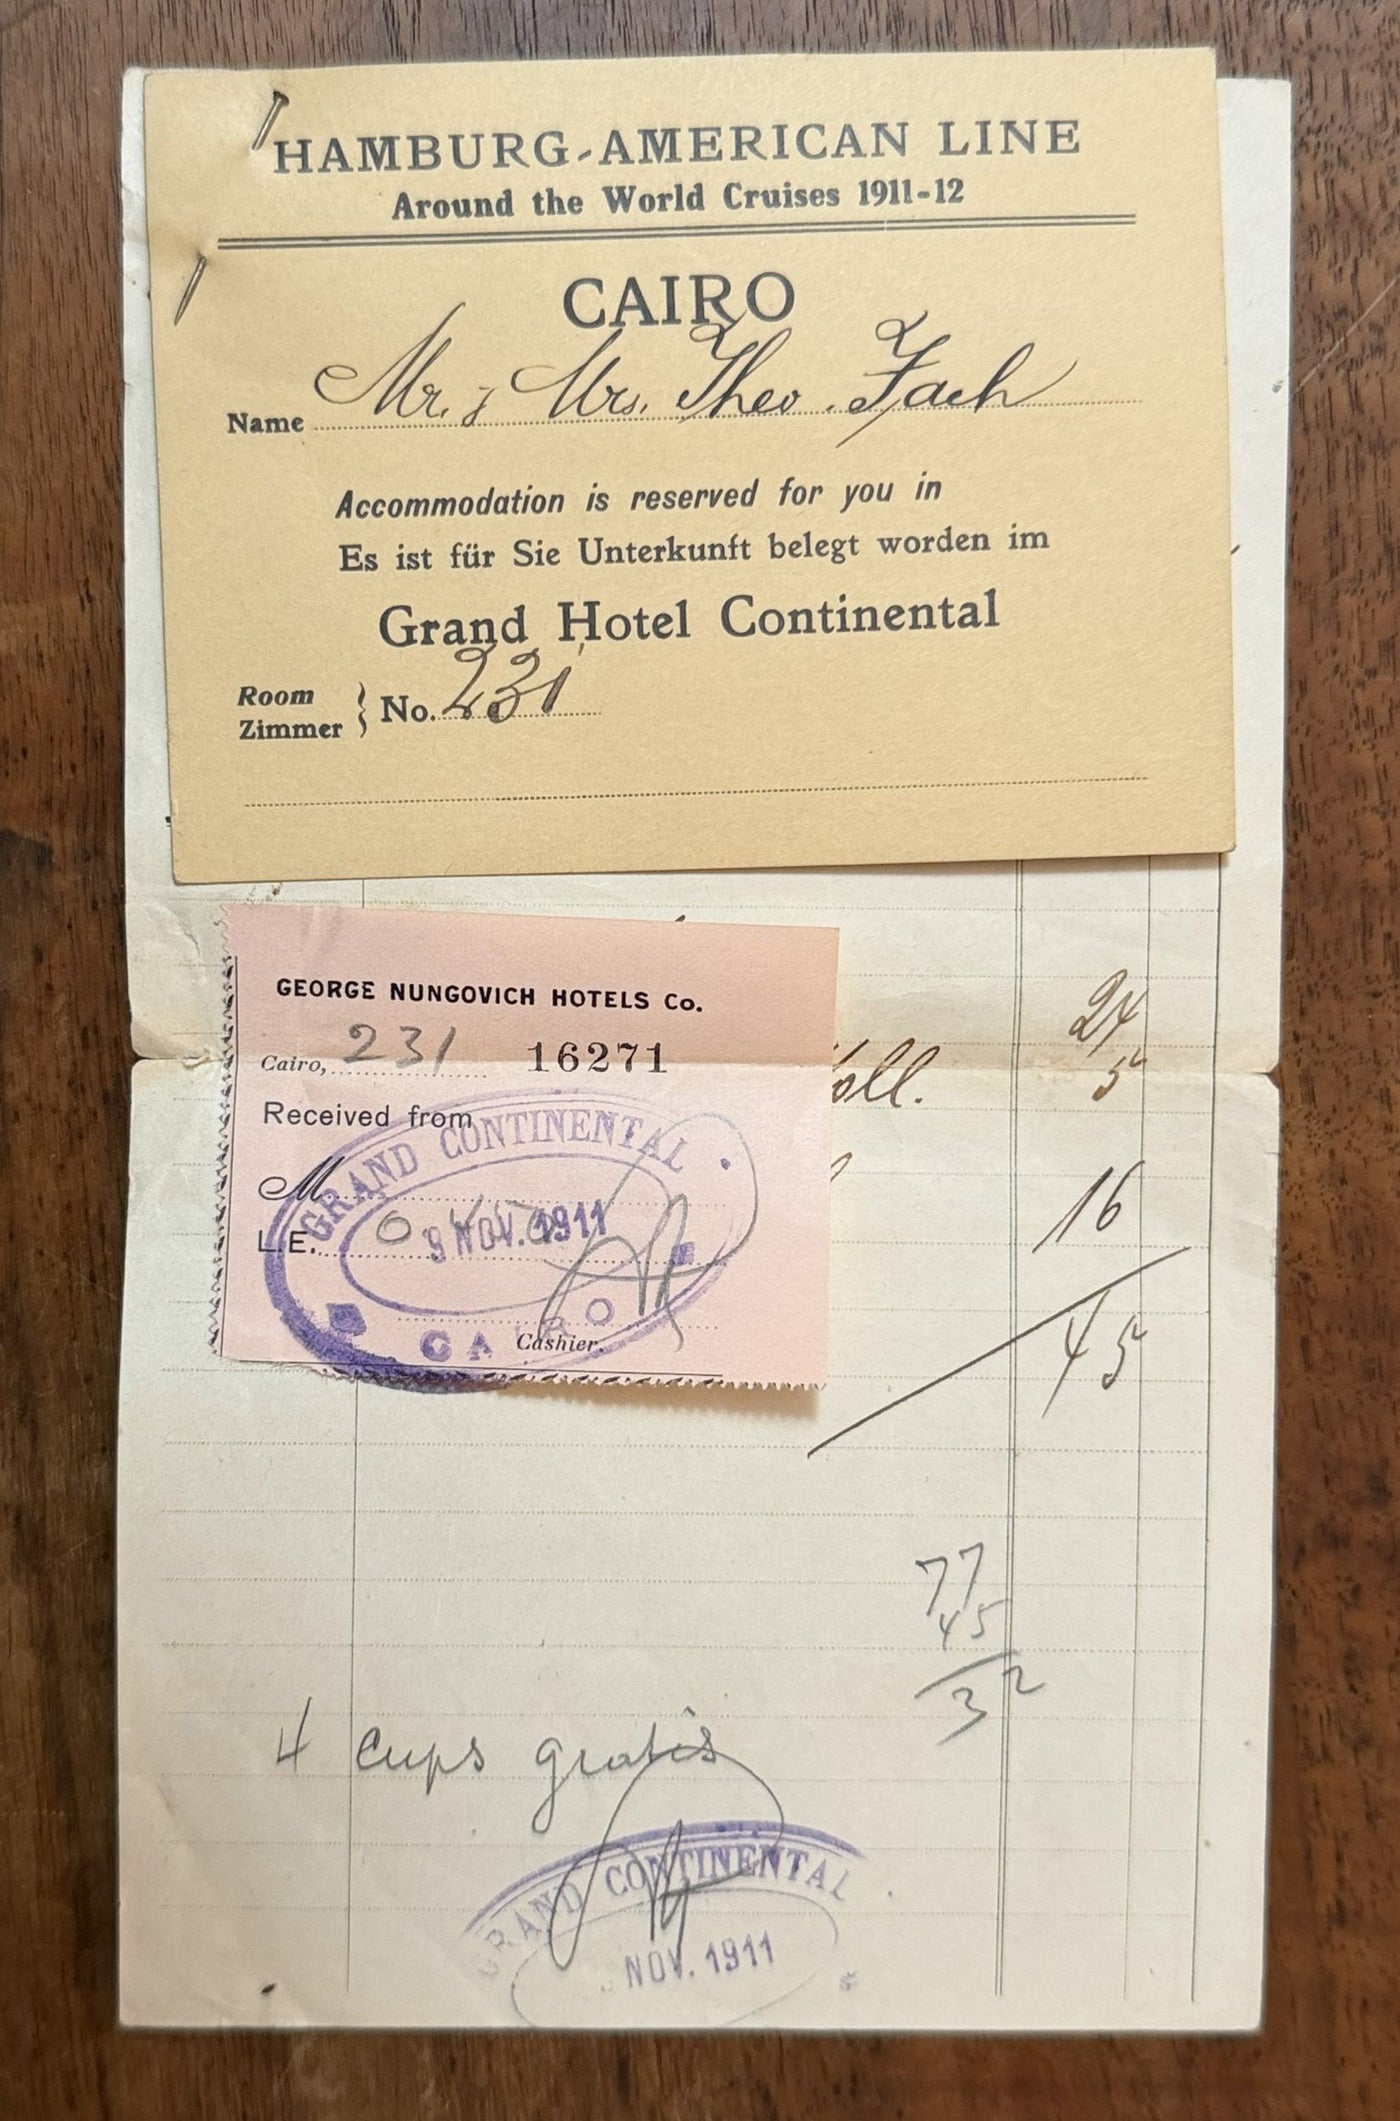 HAMBURG-AMERICAN LINE
Around the World Cruises 1911-12
CAIRO
Name Mr. & Mrs. Theo. Fach
Accommodation is reserved for you in
Es ist für Sie Unterkunft belegt worden im
Grand Hotel Continental
Room
Zimmer } No. 231
GEORGE NUNGOVICH HOTELS Co.
Cairo, 231 16271
Received from
M
L.E. 0
GRAND CONTINENTAL
9 NOV. 1911
CAIRO
Cashier.
24
oll. 5
16
45
77
45
32
4 cups gratis
GRAND CONTINENTAL
NOV. 1911